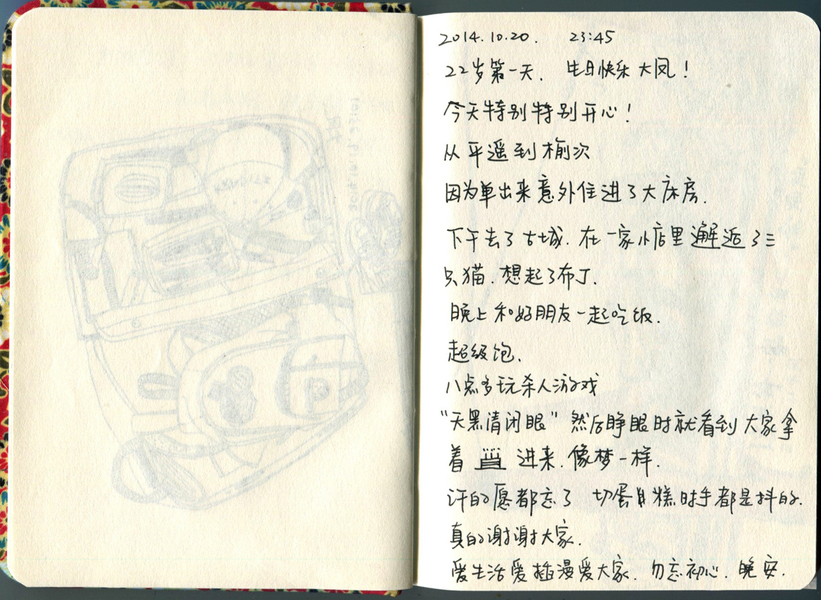 2014.10.20. 23:45
22岁第一天. 生日快乐大凤!
今天特别特别开心!
从平遥到榆次
因为单出来意外住进了大床房.
下午去了古城.在一家小店里邂逅了三
只猫.想起了布丁.
晚上和好朋友一起吃饭.
超级饱.
八点多玩杀人游戏
"天黑请闭眼"然后睁眼时就看到大家拿
着 进来.像梦一样.
许的愿都忘了 切蛋糕时手都是抖的.
真的谢谢大家.
爱生活爱插漫爱大家.勿忘初心.晚安.